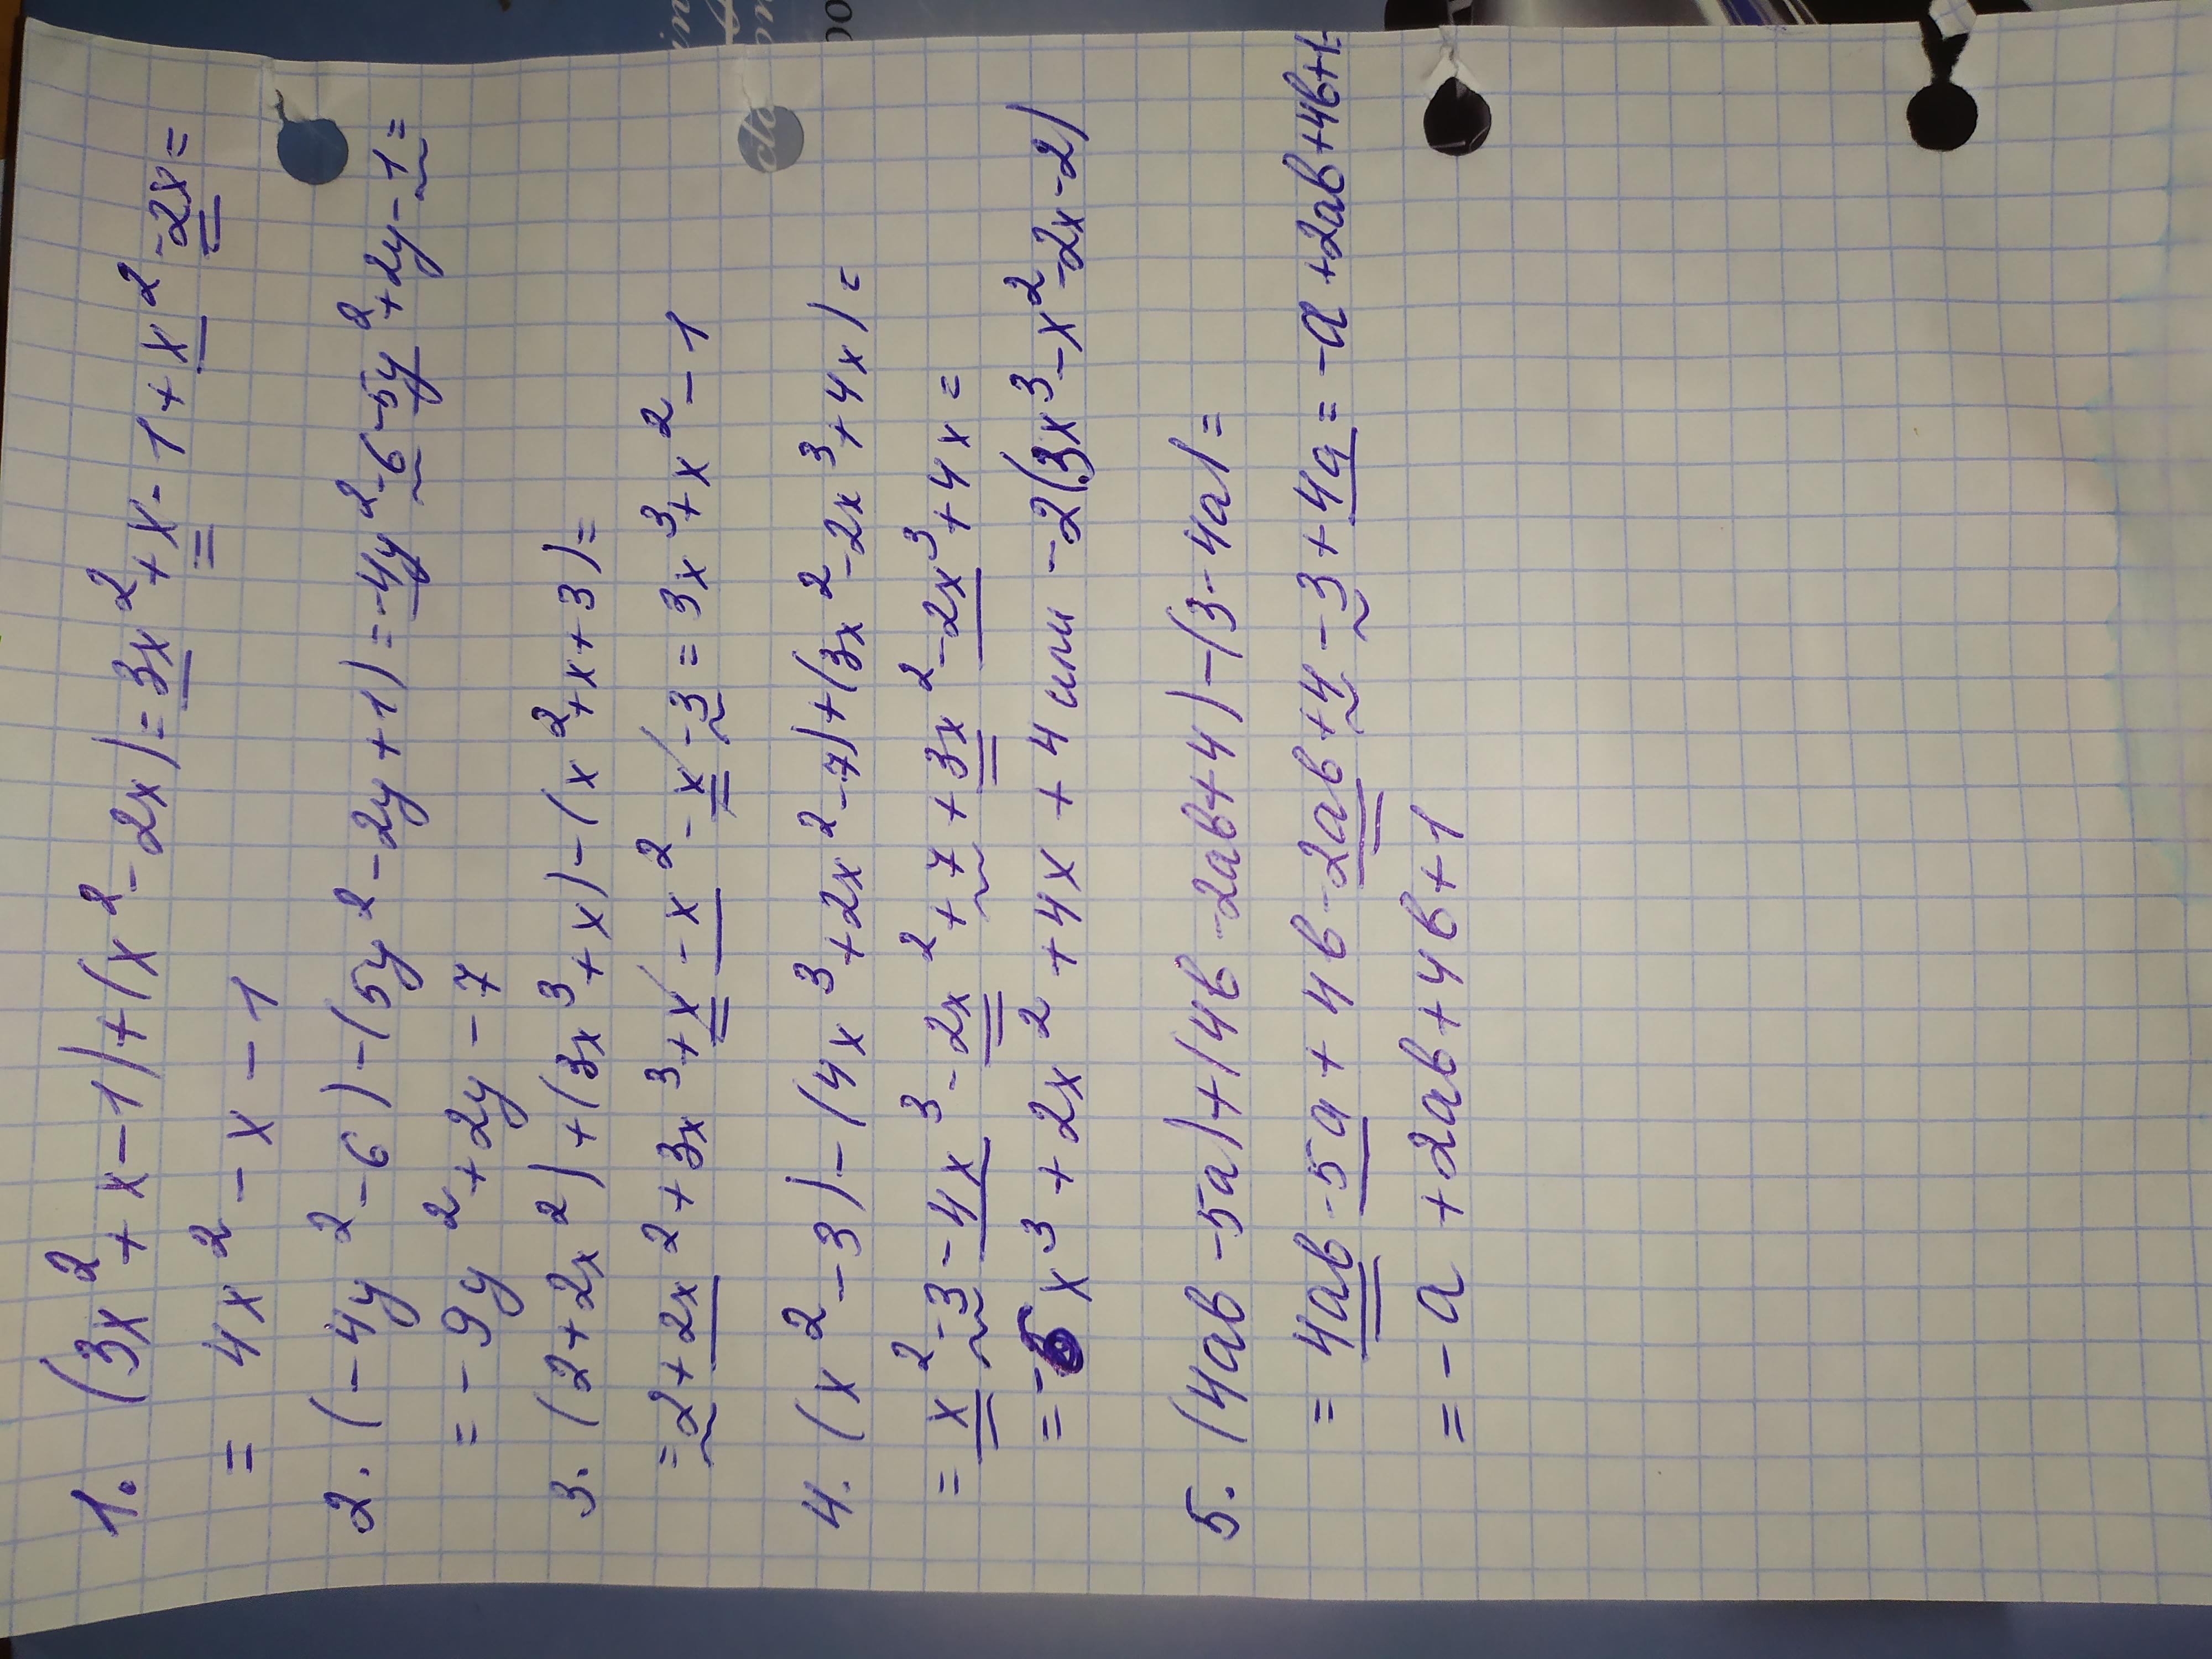 1. (3x²+x-1)+(x²-2x)=3x²+x-1+x²-2x=
= 4x²-x-1
2. (-4y²-6)-(5y²-2y+1)=-4y²-6-5y²+2y-1=
= -9y²+2y-7
3. (2+2x²)+(3x³+x)-(x²+x+3)=
=2+2x²+3x³+x-x²-x-3=3x³+x²-1
4. (x²-3)-(4x³+2x²-7)+(3x²-2x³+4x)=
=x²-3-4x³-2x²+7+3x²-2x³+4x=
=-6x³+2x²+4x+4 или -2(3x³-x²-2x-2)
5. (4ab-5a)+(4b-2ab+4)-(3-4a)=
=4ab-5a+4b-2ab+4-3+4a=-a+2ab+4b+1=
=-a+2ab+4b+1